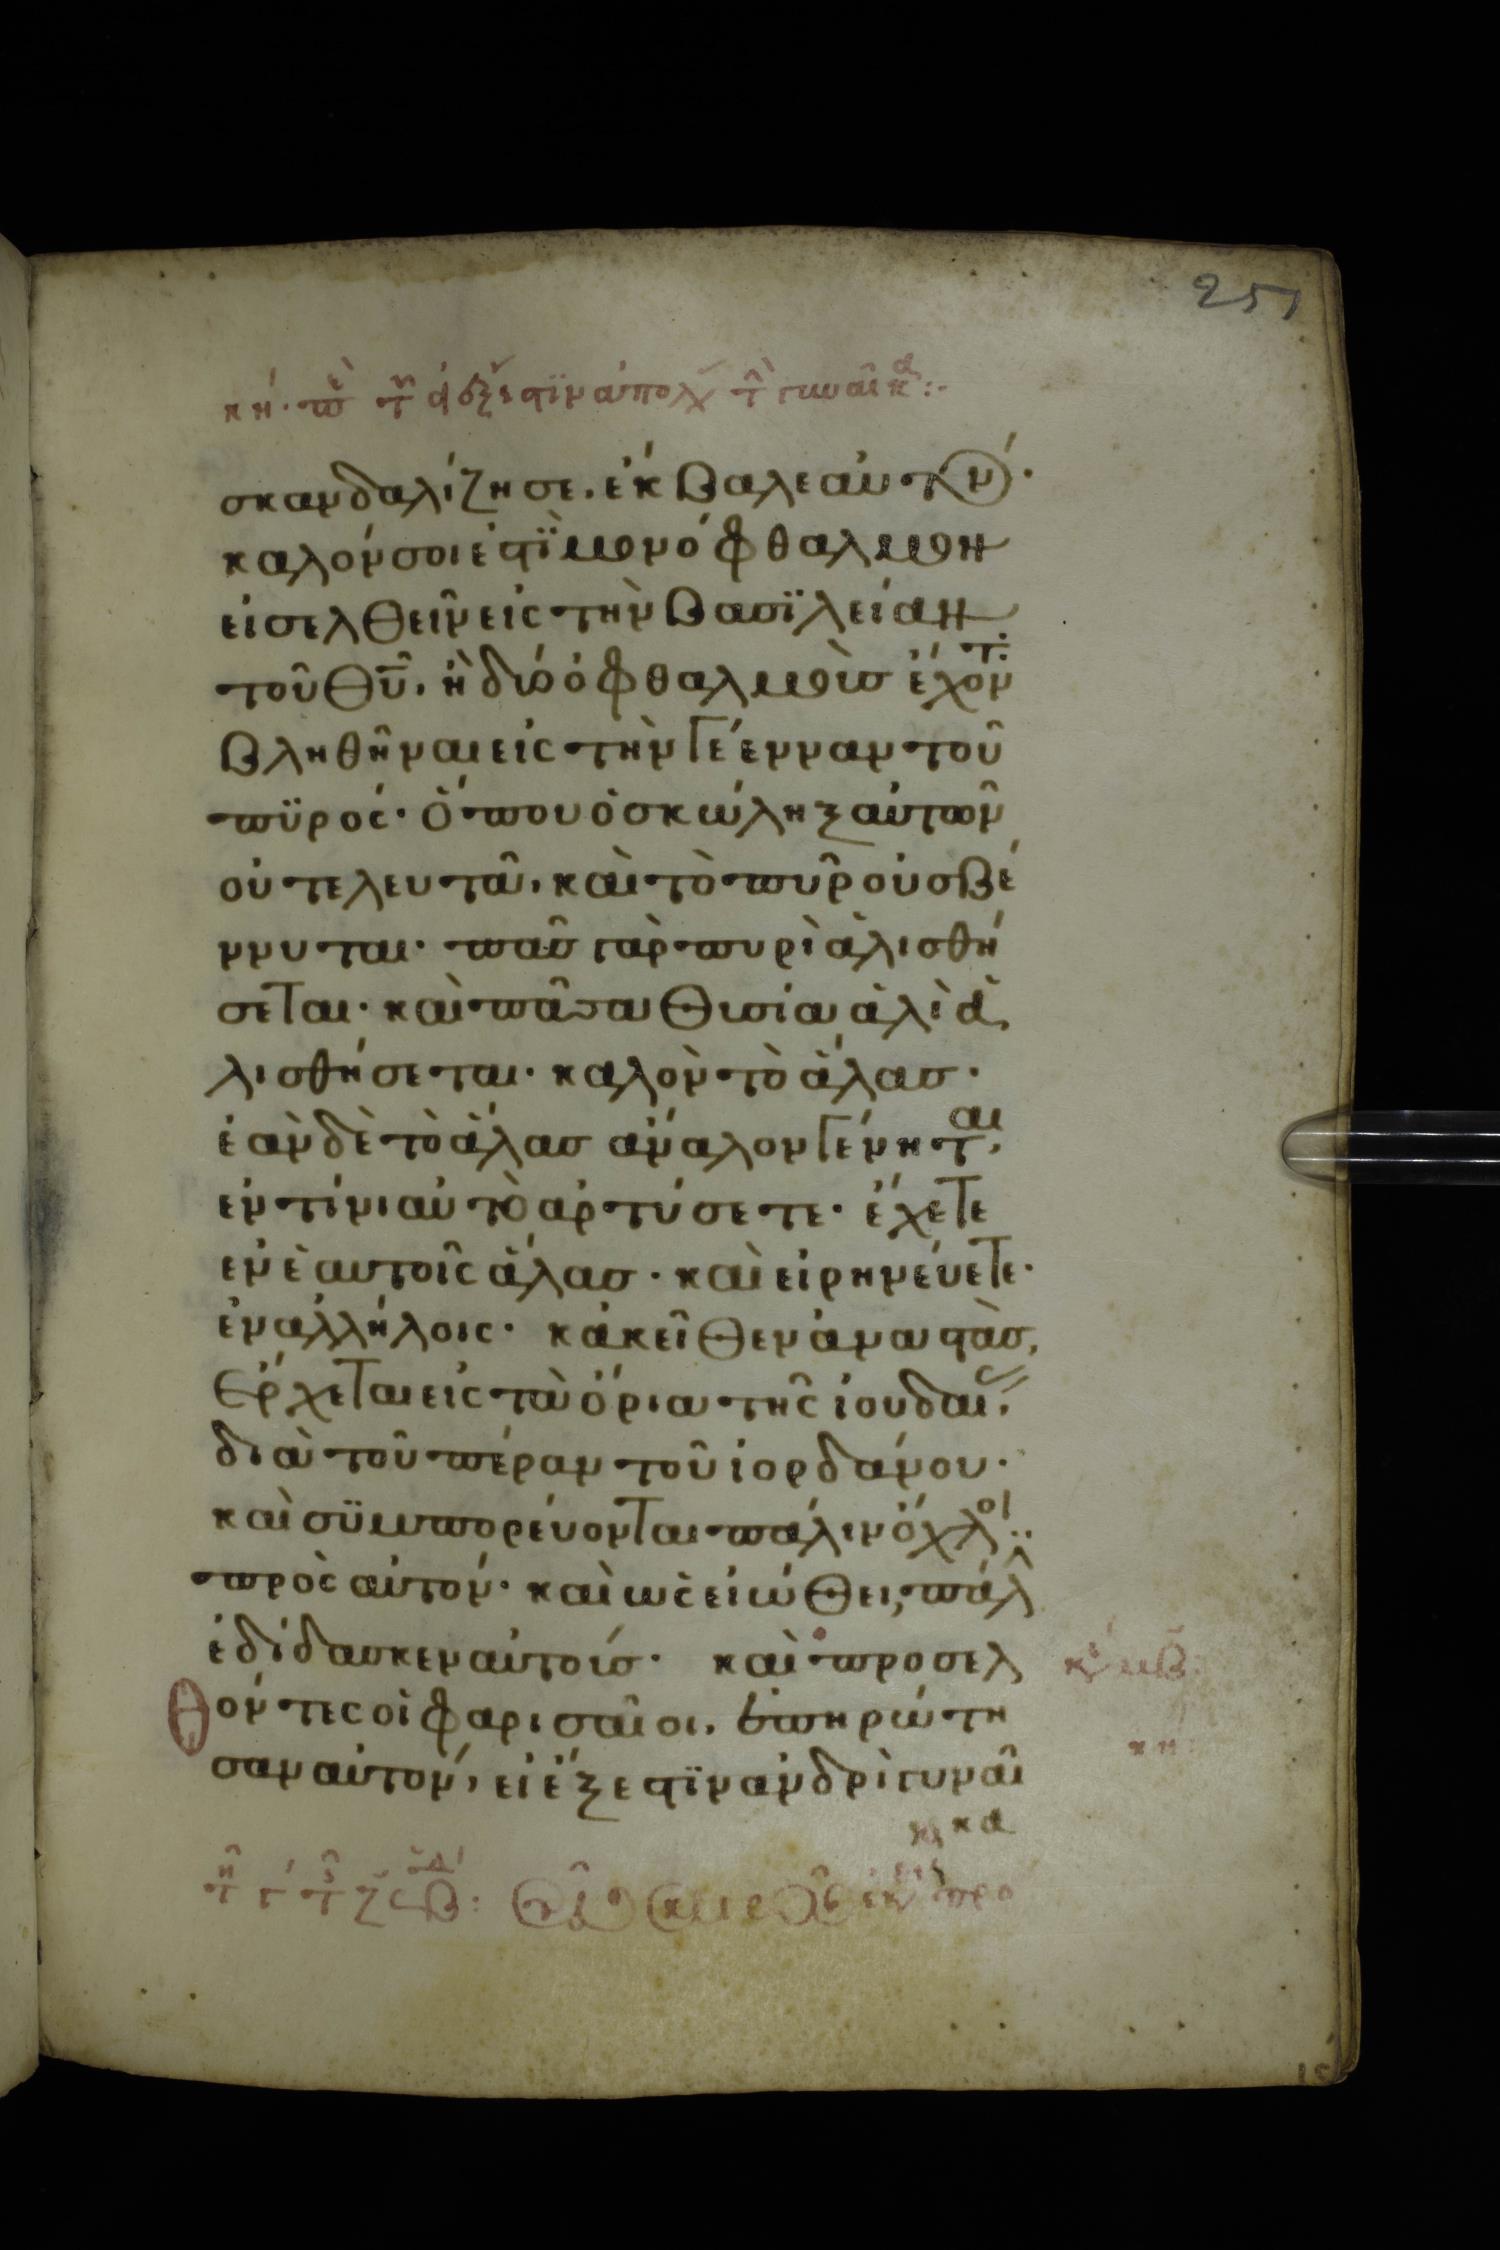 251
κη· π τ εἰ ἔξεστϊν ἀπολ τ γυναῖκα:·
σκανδαλίζη σε, έκβαλε αὐτόν·
καλόν σοι ἐστϊ μονόφθαλμον
εἰσελθεῖν εἰς τὴν βασϊλείαν
τοῦ θῦ, ἢ δύο ὀφθαλμοὺσ ἔχοντ
βληθῆναι εἰς τὴν γέενναν τοῦ
πϋρός· ὅπου ὁ σκώληξ αὐτῶν
οὐ τελευτᾶ, καὶ τὸ πυρ οὐ σβέ
ννυται· πᾶσ γὰρ πυρὶ ἁλισθή
σεται· καὶ πᾶσα θυσία ἁλὶ ἁ
λισθήσεται· καλὸν τὸ ἅλασ·
ἐὰν δὲ τὸ ἅλασ ἄναλον γένηται,
εν τίνι αὐτὸ ἀρτύσετε· ἔχετε
ἐν ἑαυτοῖς ἅλασ· καὶ εἰρηνεύετε·
ἐν ἀλλήλοις· κἀκεῖθεν ἀναστὰσ,
ἔρχεται εἰς τὰ ὅρια τῆς ἰουδαίας,
διὰ τοῦ πέραν τοῦ ἰορδάνου·
καὶ σϋμπορεύονται πάλιν ὄχλοι··
πρὸς αὐτόν· καὶ ὡς εἰώθει, πάλ
ἐδίδασκεν αὐτούσ· καὶ προσελ
θόντες οἱ φαρισαῖοι, ἐπηρώτη
σαν αὐτόν, εἰ ἔξεστϊν ἀνδρὶ γυναῖ
κα
κη